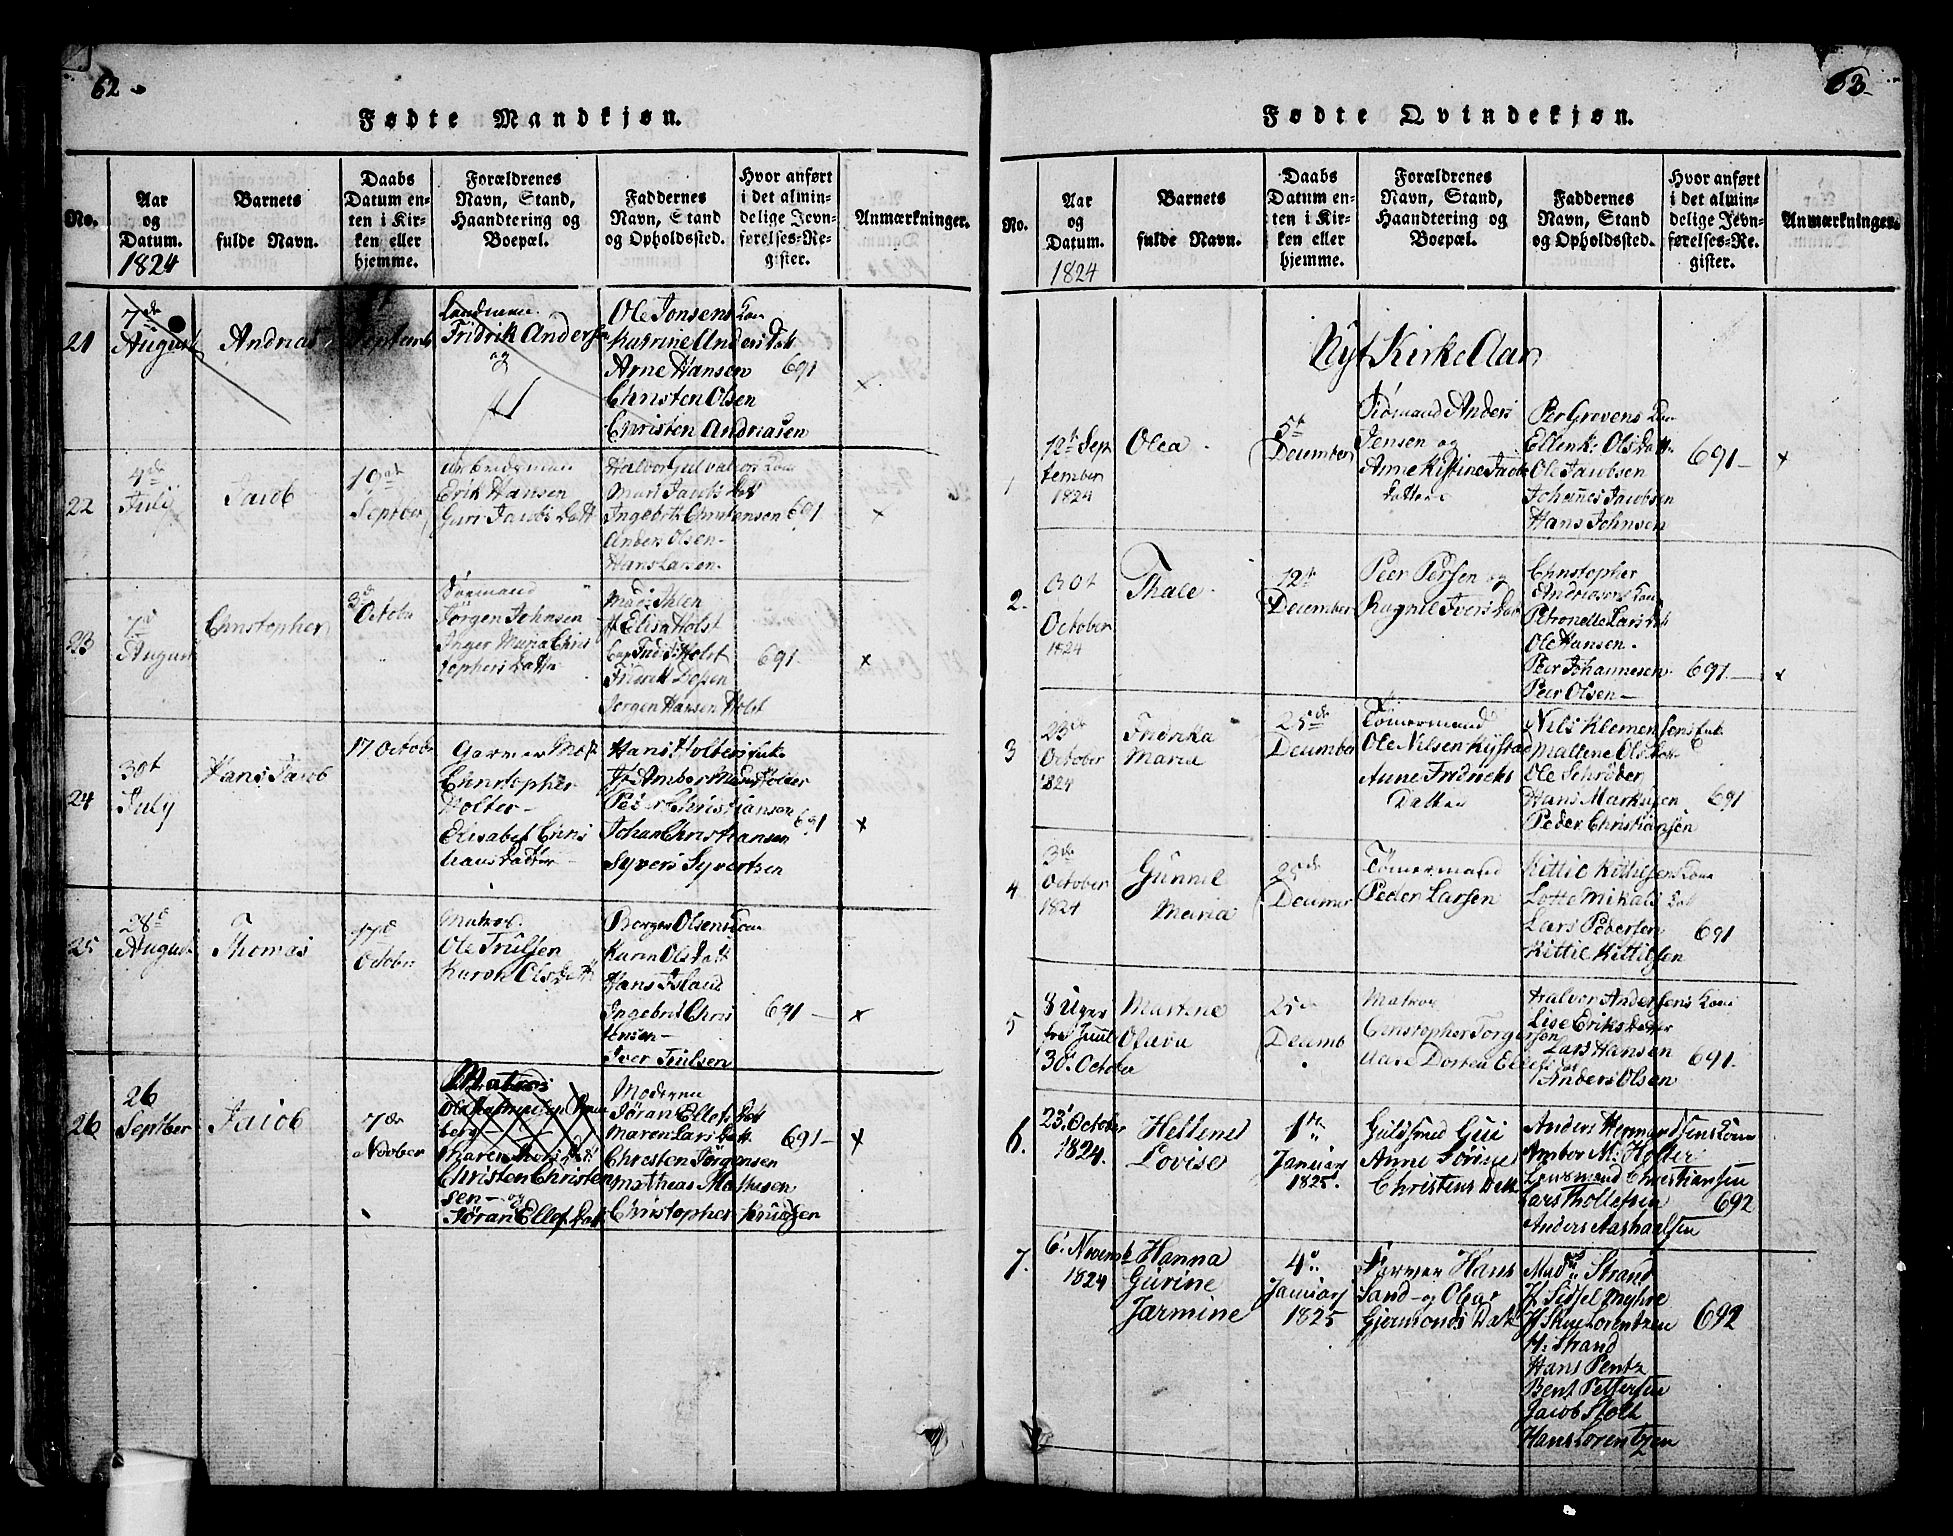 62
Fødte Mandkjøn.
No.
Aar
og
Datum.
1824
Barnets
fulde Navn.
Daabs
Datum en-
ten i Kir-
ken eller
hjemme.
Forældrenes
Navn, Stand,
Haandtering og
Boepæl.
Faddernes
Navn, Stand
og Opholdssted.
Hvor anført
i det almin-
delige Jevn-
førelses-Re-
gister.
Anmærkninger.
21
7de
August
Andrias
Landmen.
Fridrik Anders
og
Ole Jonsens Kone
Katrine Anders Datt
Arne Hansen
Christen Olsen
Christen Andriasen
691
x
22
4de
Julij
Jacob
19
Septber
Erik Hansen
Guri Jacobs Datt
Mari Jacobs Datt
Ingebrih Christensen
Anders Olsen
Hans Larsen
691
x
23
7d
August
Christopher
3d
Octobr
Jørgen Johnsen
Inger Maria Chris
tophers Datter
Mad: Ihlen
J. Elisa Holst
Holst
Fridrik
Jørgen Hansen Holst
691
x
24
30t
July
Hans Jacob
17 Octobr
Garver
Christopher
Holter
Elisabet Chris
tians Datter
Hans Holters
Peder Christiansen
Johan Christiansen
Syvers Syvertsen
691
x
25
28d
August
Thomas
17d
Octobr
Matros
Ole Trulsen
Karen Olsdatt
Borger Olsens Kone
Karen Olsdatt
Hans Island
Ingebrit Chris
tensen
Iver Trulsen
691
x
26
26
Septber
Jacob
7de
Novber
Matros
Christen Christen
sen og
Søran Ellefs Datt
Moderen
Søran Ellefs Datt
Maren Lars Datt
Chresten Jørgensen
Mathias Mathesen
Christopher Knudsen
691
x
63
Fødte Qvindekjøn.
No.
Aar
og
Datum.
1824
Barnets
fulde Navn.
Daabs
Datum en-
ten i Kir-
ken eller
hjemme.
Forældrenes
Navn, Stand,
Haandtering og
Boepæl.
Faddernes
Navn, Stand
og Opholdssted.
Hvor anført
i det almin-
delige Jevn-
førelses-Re-
gister.
Anmærkninger.
Nyt Kirke Aar
1
12t Sep
tember
1824
Olea
5t
Decumber
Anders
Jensen og
Anne Kistine Jacobs
Datter
Per Grevens Kone
Ellen K: Olsdatt
Ole Jacobsen
Johanes Jacobsen
Hans Johnsen
691
x
2.
30t
October
1824
Thale
12t
Decumber
Peer Persen og
Ragnile Ivers Datt
Christopher
Andriasens Kone
Petronelle Lars Dat
Ole Hansen
Peer Johannesen
Peer Olsen
691
x
3
23de
October
1824
Fredrika
Maria
25de
Decumber
Tømermand
Ole Nilsen Kystad
Anne Fredricks
Datter
Nils Klemensens
Mallene Ols Dat
Ole Schrøder
Hans Markusen
Peder Christiansen
691
4
3de
October
1824
Gunnel
Maria
25de
Tømermand
Peder Larsen
Kittil Kittilsens Kone
Lotte Mikals Dat
Lars Pedersen
Kittil Kittilsen
691
5
8 Uger
før Juul
30t October
Martene
Olivia
25de
Decumb
Matros
Christopher Torger
sen
Aase Dortea Ellefs
Halvor Andersens Kone
Lise Eriks Datter
Lars Hansen
Anders Olsen
691.
6.
23t October
1824.
Hellene
Lovise
1te
Januarj
1825.
Guldsmed Gui
Anne Sørine
Christens Datt
Anders Hermandsens Kone
Ambor M: Holter
Lensmand Christiansen
Lars Thollefsen
Anders Aashaalsen
692
7.
6t Novemb
1824
Hanna
Gurine
Jarmine
4de
Januarj
1825
Farver Hans
Sand og Olea
Gjermonds Datt
Madm Strand
J. Sissel Myhre
H Skue Lorentzen
H: Strand
Hans Pentz
Bent Pettersen
Jacob Flod
Hans Lorentzen
692